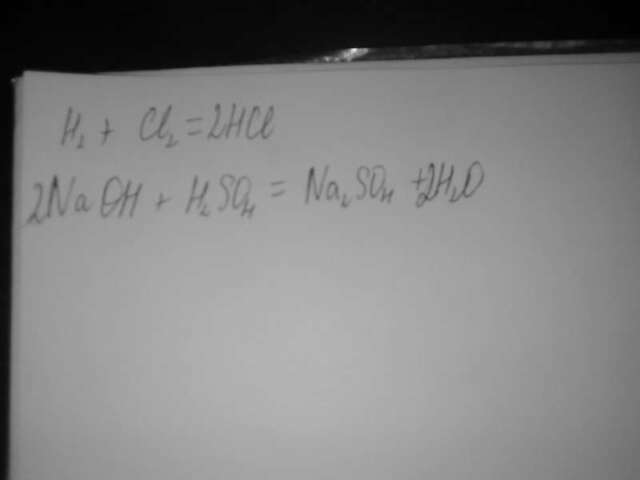 H₂ + Cl₂ = 2HCl
2NaOH + H₂SO₄ = Na₂SO₄ + 2H₂O